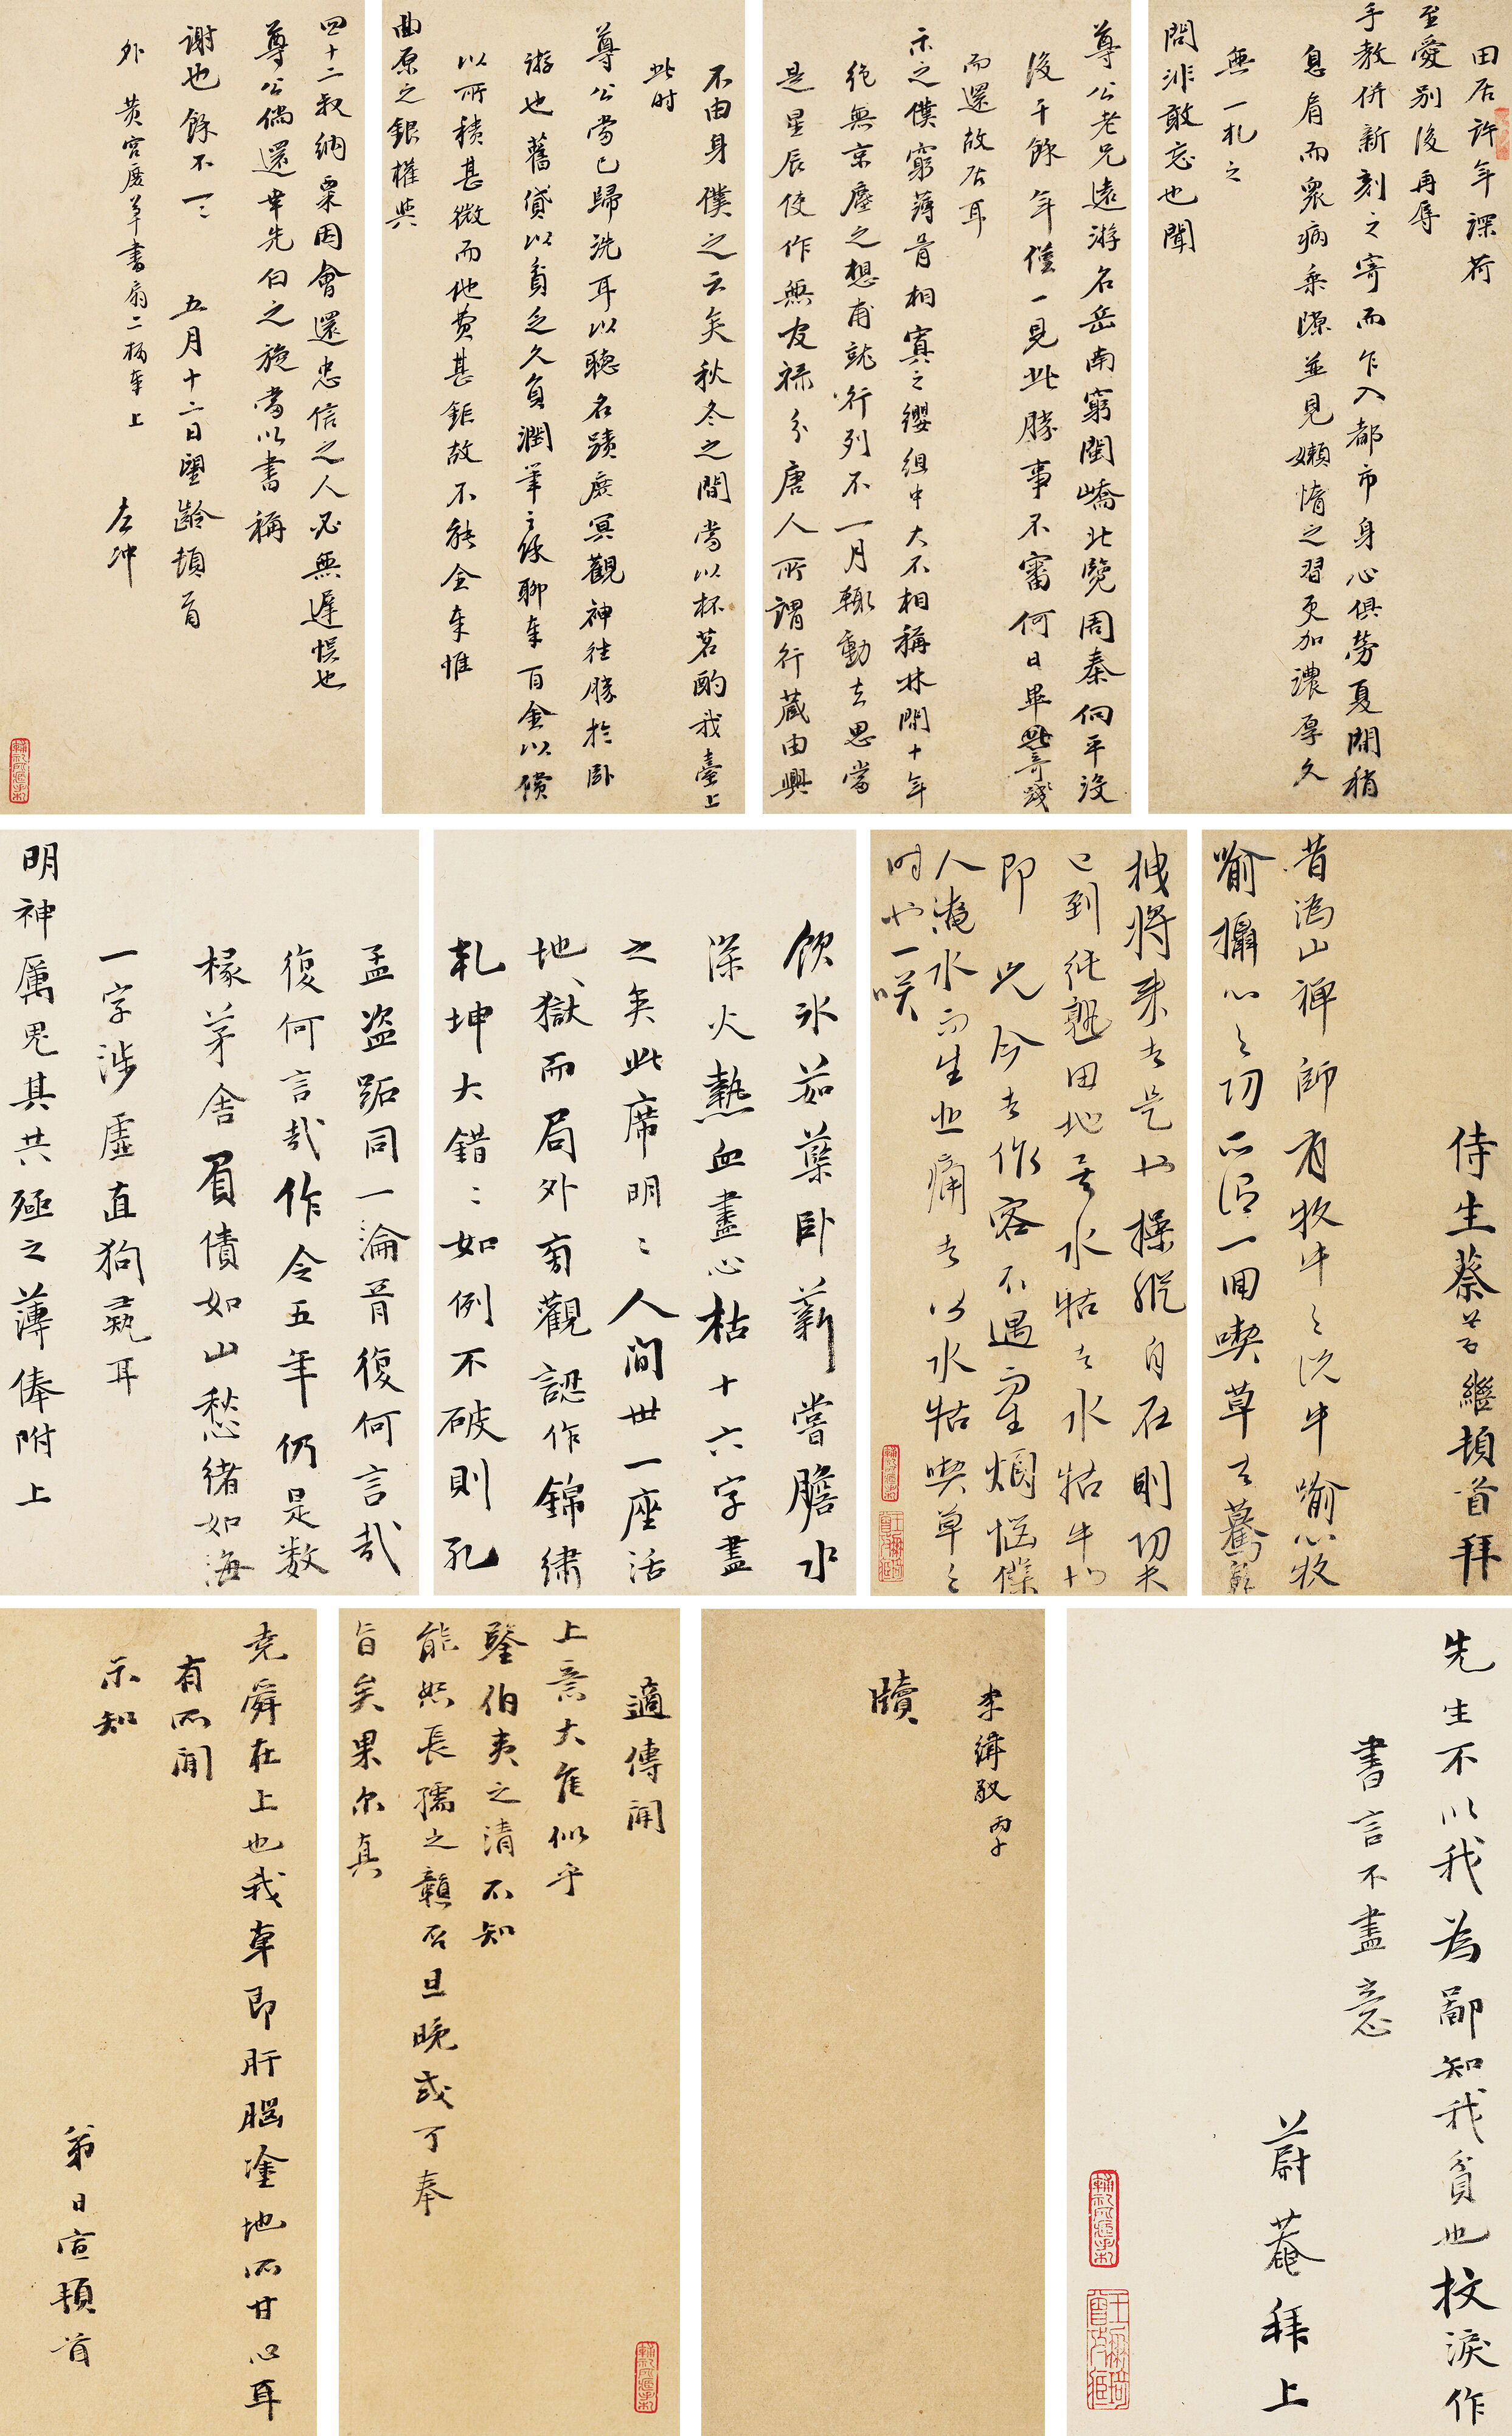 田居許年深荷
至愛別後再辱
手教併新刻之寄而乍入都市身心俱勞夏間稍
息肩而眾病乘隙並見嬾惰之習更加濃厚久
無一札之
問非敢忘也聞
尊公老兄遠游名岳南窮閩嶠北覽周秦向平沒
後千餘年僅一見此勝事不審何日畢此奇踐
而還故居耳
示之僕窮薄骨相寘之纓組中大不相稱林間十年
絕無京塵之想甫就行列不一月輒動去思當
是星辰使作無友祿分唐人所謂行藏由興
不由身僕之云矣秋冬之間當以杯茗酌我臺上
此时
尊公當已歸洗耳以聽名蹟廣冥觀神往勝於臥
游也舊貸以貧乏久負潤筆之餘聊奉百金以償
以所積甚微而他費甚鉅故不能全奉惟
曲原之銀權與
四十二叔納粟因會還忠信之人必無遲悮也
尊公倘還幸先白之旋當以書稱
謝也餘不一一 五月十二日望齡頓首
外 黃宮庶草書扇二柄奉上
左沖
侍生蔡善繼頓首拜
昔溈山禪師有牧牛之說牛喻心牧
喻攝心之功所謂一回喫草云驀鼻
拽將來去是也操縱自在則功夫
已到純熟田地矣水牯者水牯牛也
即兄今者作客不過而生煩惱僕
人淹水而生悲痛者以水牯喫草之
时也一咲
飲冰茹蘗臥薪嘗膽水
深火熱血盡心枯十六字盡
之矣此席明明人間世一座活
地獄而局外旁觀認作錦繡
乾坤大錯大錯如例不破則孔
孟盜跖同一淪胥復何言哉
復何言哉作令五年仍是数
椽茅舍眉債如山愁緒如海
一字涉虛直狗彘耳
明神厲鬼其共殛之薄俸附上
先生不以我為鄙知我貧也抆淚作
書言不盡意
蔚菴拜上
李緯馭丙子
牘
適傳聞
上意大隹似乎
鑒伯夷之清不知
能恕長孺之贛否旦晚或可奉
旨矣果尔真
尭舜在上也我輩即肝腦塗地所甘心耳
有所聞
示知
弟日宣頓首